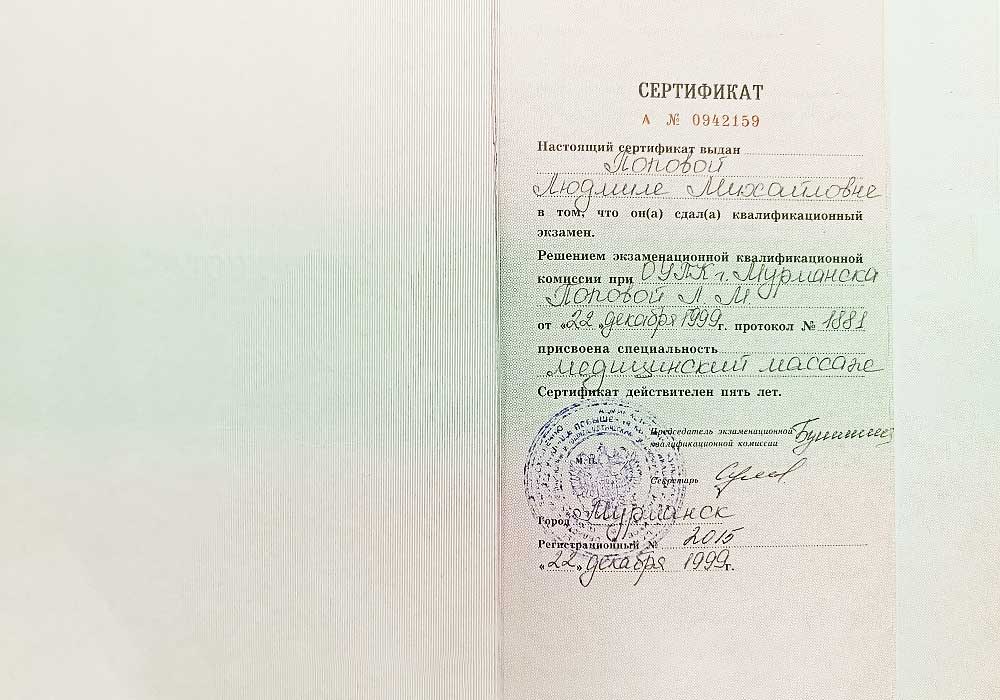 СЕРТИФИКАТ
А № 0942159
Настоящий сертификат выдан
Поповой
Людмиле Михайловне
в том, что он(а) сдал(а) квалификационный
экзамен.
Решением экзаменационной квалификационной
комиссии при ОУПК г. Мурманска
Поповой Л М
от «22» декабря 1999г. протокол № 1881
присвоена специальность
медицинский массаж
Сертификат действителен пять лет.
Председатель экзаменационной
квалификационной комиссии
М. П.
Секретарь
Город Мурманск
Регистрационный № 2015
«22» декабря 1999г.